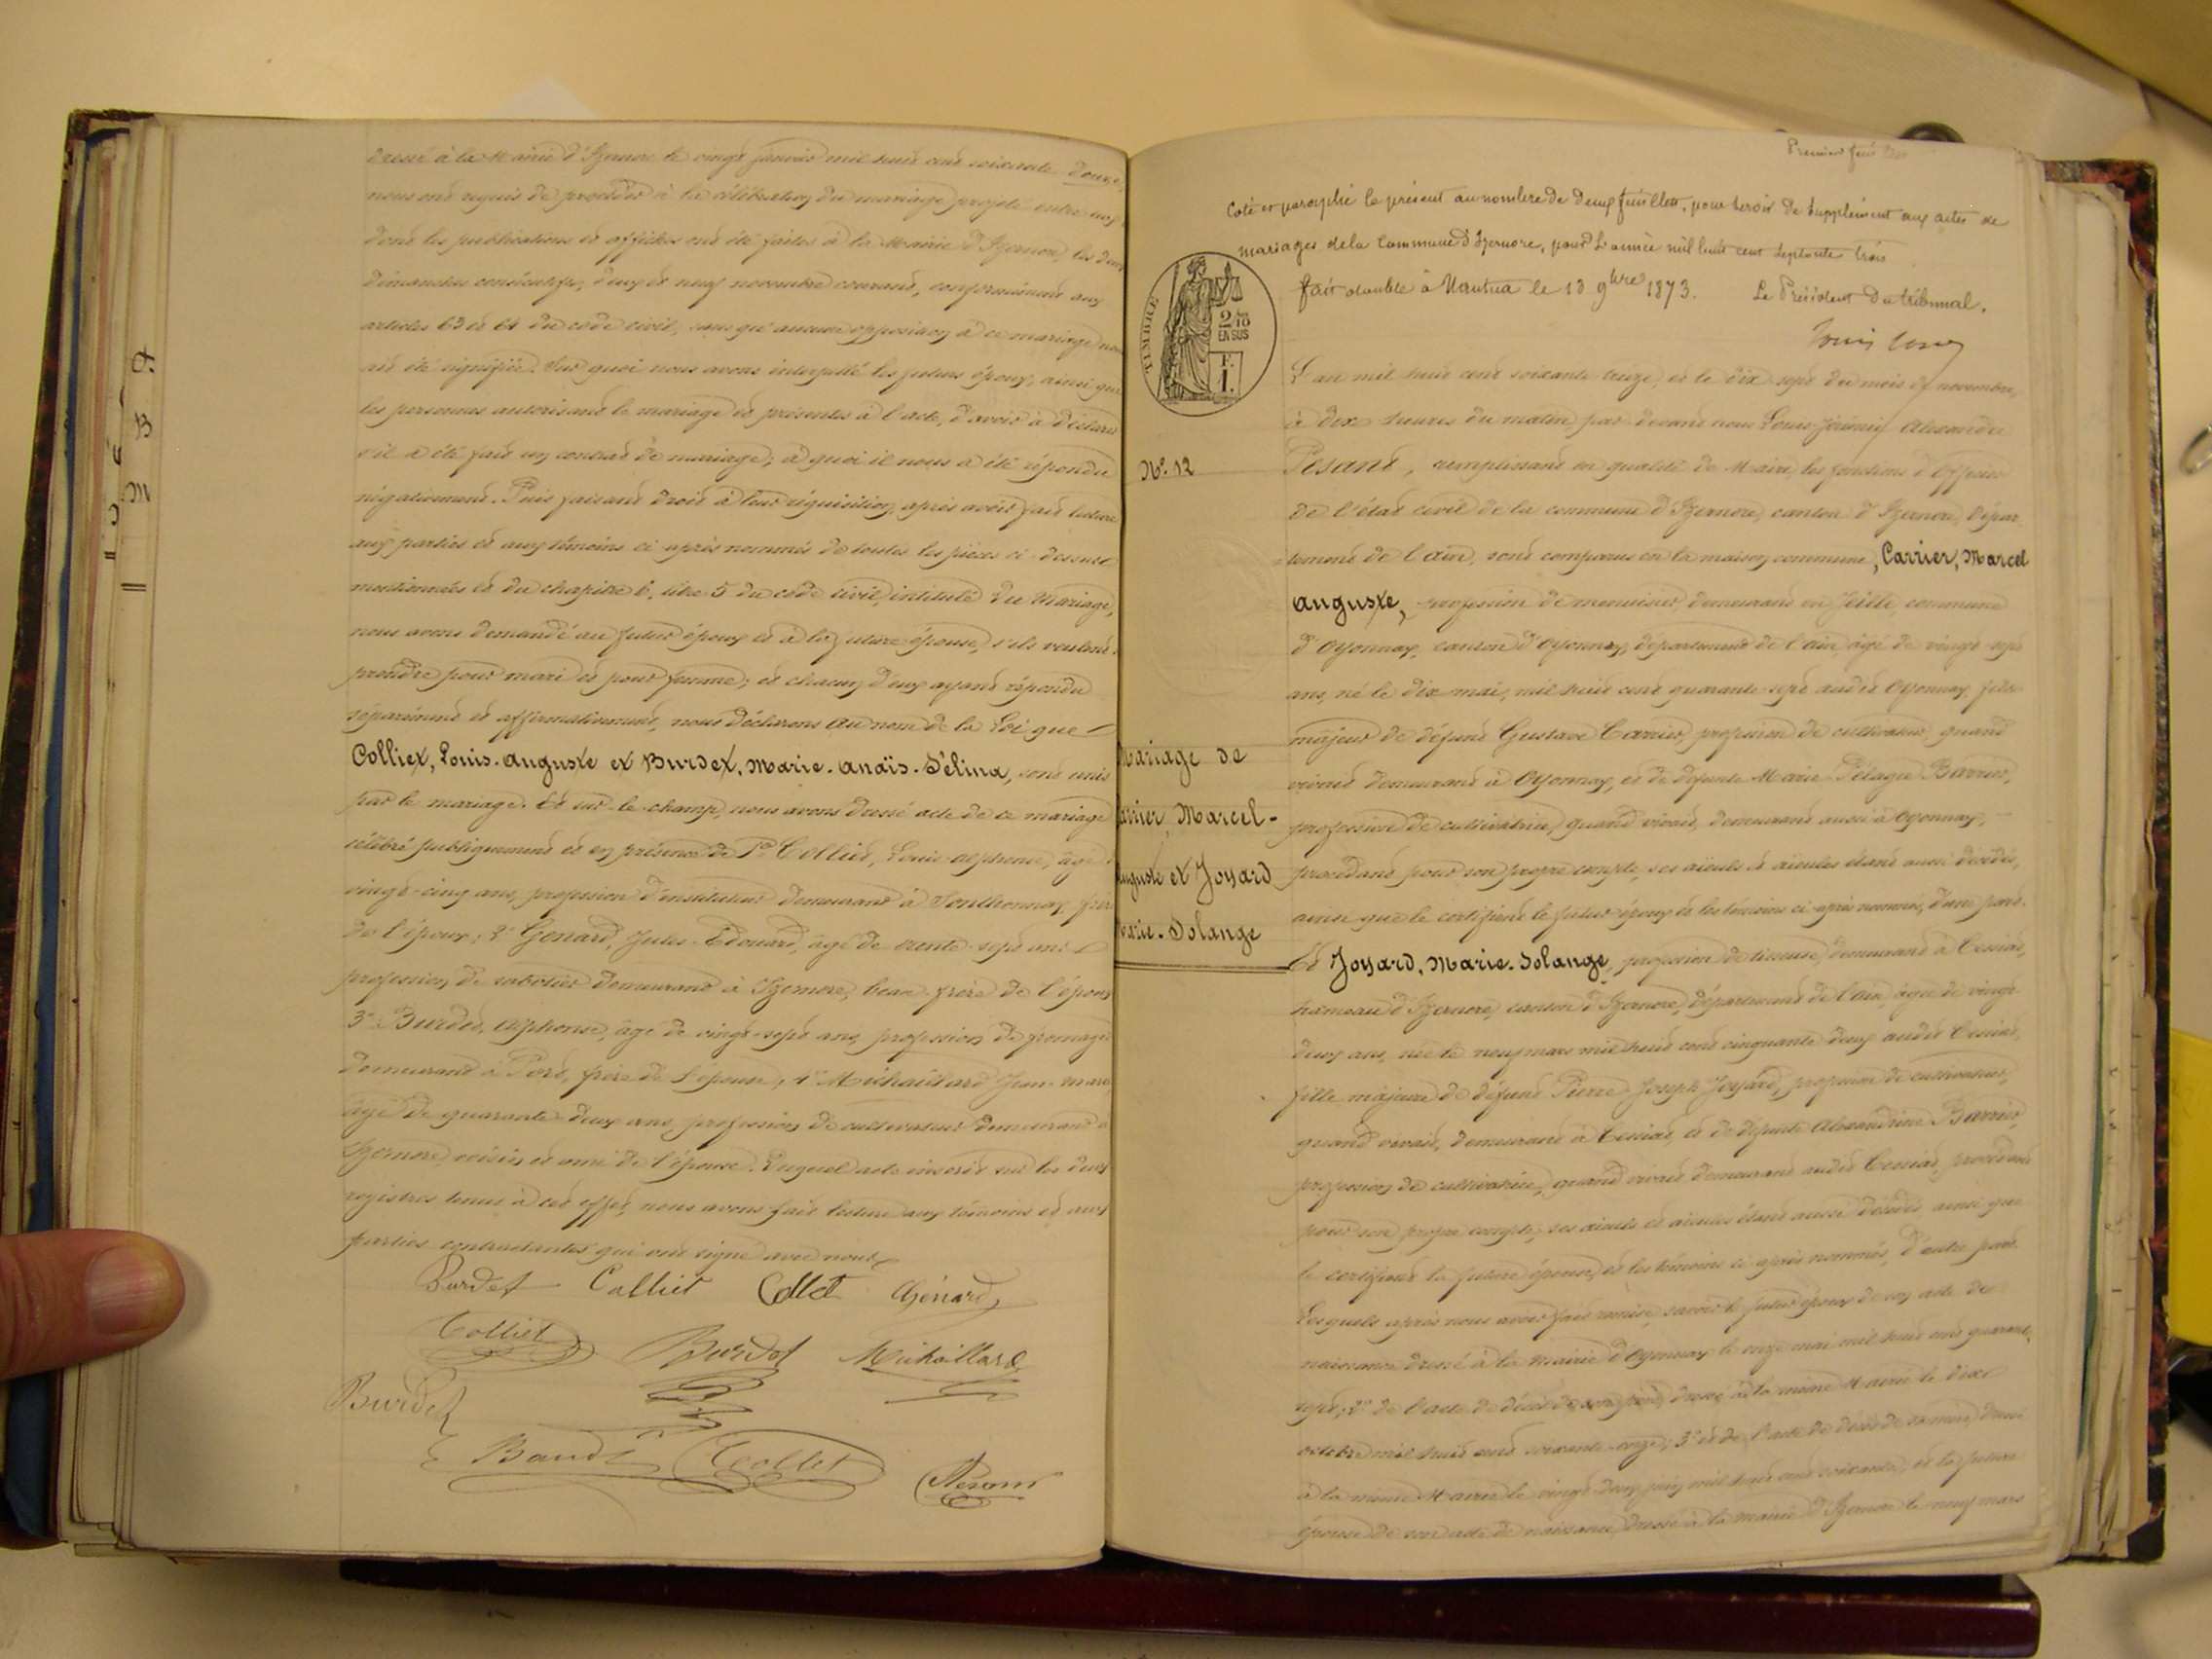 dressé à la Mairie d'Izernore le vingt janvier mil huit cent soixante douze,
nous ont requis de procéder à la célébration du mariage projeté entre eux
dont les publications et affiches ont été faites à la Mairie d'Izernore, les deux
dimanches consécutifs, deux et neuf novembre courant, conformément aux
articles 63 et 64 du code civil, sans qu'aucune opposition à ce mariage nous
ait été signifiée. Sur quoi nous avons interpellé les futurs époux, ainsi que
les personnes autorisant le mariage et présentes à l'acte, d'avoir à déclarer
s'il a été fait un contrat de mariage; à quoi il nous a été répondu
négativement. Puis faisant droit à leur réquisition, après avoir fait lecture
aux parties et aux témoins ci après nommés de toutes les pièces ci-dessus
mentionnées et du chapitre 6, titre 5 du code civil, intitulé Du Mariage,
nous avons demandé au futur époux et à la future épouse, s'ils veulent
prendre pour mari et pour femme; et chacun d'eux ayant répondu
séparément et affirmativement, nous déclarons au nom de la Loi que
Colliet, Louis-Auguste et Burdet, Marie-Anaïs-Sélina, sont unis
par le mariage. Et sur-le-champ, nous avons dressé acte de ce mariage
célébré publiquement et en présence de 1° Colliet, Louis-Alphonse, âgé
vingt-cinq ans, profession d'instituteur demeurant à Sonthonnax, frère
de l'époux; 2° Génard, Jules-Edouard, âgé de trente-sept ans
profession de sabotier demeurant à Izernore, beau-frère de l'époux
3° Burdet, Alphonse, âgé de vingt-sept ans, profession de fromager
demeurant à Port, frère de l'épouse; 4° Michaillard Jean-Marie
âgé de quarante-deux ans, profession de cultivateur demeurant à
Izernore, voisin et ami de l'épouse. Duquel acte inscrit sur les deux
registres tenus à cet effet, nous avons fait lecture aux témoins et aux
parties contractantes qui ont signé avec nous
Burdet Colliet Collet Génard
Colliet Burdet Michaillard
Burdet
Baudt Collet Pesant
Premier feuillet
Coté et paraphé le présent au nombre de deux feuillets, pour servir de supplément aux actes de
mariages de la Commune d'Izernore, pour L'année mil huit cent septante trois
fait double à Nantua le 13 9bre 1873. Le Président du tribunal.
TIMBRE
2/10
EN SUS
F.
1.
L'an mil huit cent soixante treize, et le dix-sept du mois de novembre,
à dix heures du matin, par devant nous Louis-Jérémie Alexandre
N°. 12
Pesant, remplissant en qualité de Maire, les fonctions d'officier
de l'état civil de la commune d'Izernore, canton d'Izernore, dépar-
tement de l'Ain, sont comparus en la maison commune, Carrier, Marcel
Auguste, profession de menuisier, demeurant en Jeille, commune
d'Oyonnax, canton d'Oyonnax, département de l'Ain, âgé de vingt-sept
ans, né le dix mai, mil huit cent quarante-sept audit Oyonnax, fils
majeur de défunt Gustave Carrier, profession de cultivateur, quand
vivait demeurant à Oyonnax, et de défunte Marie-Pélagie Barrier,
profession de cultivatrice, quand vivait, demeurant aussi à Oyonnax,
procédant pour son propre compte, ses aïeuls et aïeules étant aussi décédés,
ainsi que le certifient le futur époux et les témoins ci-après nommés, d'une part.
Mariage de
Carrier, Marcel-
Auguste et Joyard
Marie-Solange
Et Joyard, Marie-Solange, profession de tisseuse, demeurant à Cessiat,
hameau d'Izernore, canton d'Izernore, département de l'Ain, âgée de vingt
deux ans, née le neuf mars mil huit cent cinquante deux audit Cessiat,
fille majeure de défunt Pierre Joseph Joyard, profession de cultivateur,
quand vivait, demeurant à Cessiat, et de défunte Alexandrine Barrier,
profession de cultivatrice, quand vivait demeurant audit Cessiat, procédant
pour son propre compte, ses aïeuls et aïeules étant aussi décédés ainsi que
le certifient la future épouse, et les témoins ci-après nommés, d'autre part.
Lesquels après nous avoir fait remise, savoir le futur époux de son acte de
naissance dressé à la Mairie d'Oyonnax le onze mai mil huit cent quarante
sept; 2° de l'acte de décès de son père, dressé à la même Mairie le dix
octobre mil huit cent soixante-onze; 3° et de l'acte de décès de sa mère, dressé
à la même Mairie le vingt-deux juin mil huit cent soixante; et la future
épouse de son acte de naissance, dressé à la mairie d'Izernore le neuf mars